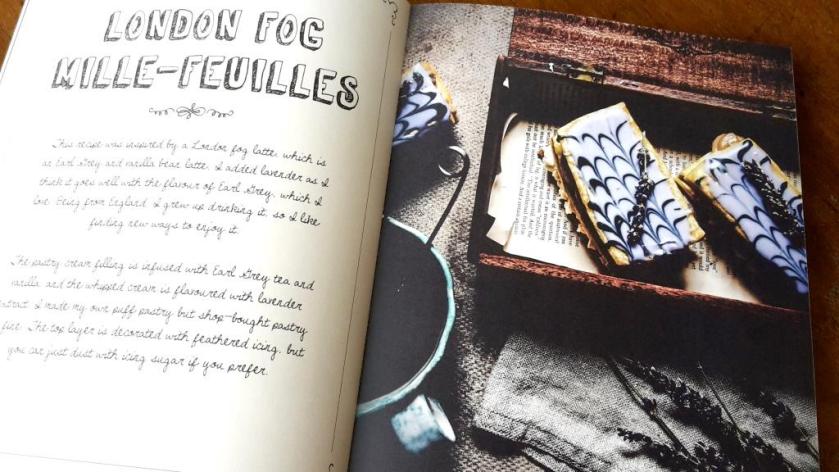 LONDON FOG
MILLE-FEUILLES
This recipe was inspired by a London fog latte, which is
an Earl Grey and vanilla bean latte. I added lavender as I
think it goes well with the flavour of Earl Grey, which I
love. Being from England, I grew up drinking it, so I like
finding new ways to enjoy it.
The pastry cream filling is infused with Earl Grey tea and
vanilla and the whipped cream is flavoured with lavender
extract. I made my own puff pastry but shop-bought pastry
fine. The top layer is decorated with feathered icing, but
you can just dust with icing sugar if you prefer.